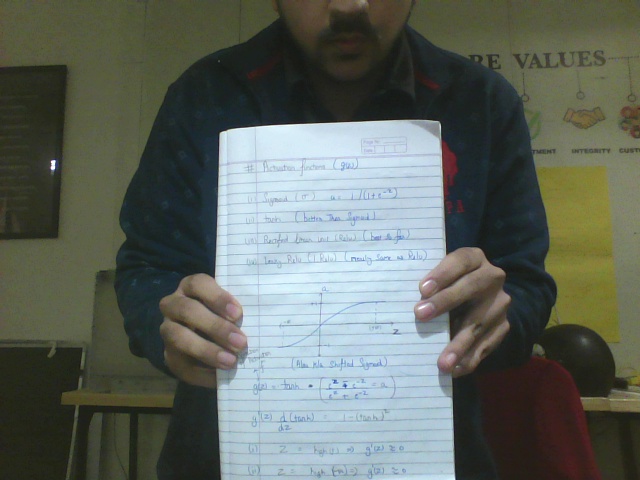 RE VALUES
TMENT INTEGRITY CUST
Page No.
Date
# Activation functions (g(z))
(i) Sigmoid (σ) a = 1 / (1 + e^-z)
(ii) tanh (better than Sigmoid)
(iii) Rectified linear unit (Relu) (best so far)
(iv) Leaky Relu (L Relu) (mostly same as Relu)
a
z
(Also k/a Shifted Sigmoid)
g(z) = tanh (e^z - e^-z / e^z + e^-z = a)
g'(z) d/dz (tanh) = 1 - (tanh)²
(i) Z = high (+) ⇒ g'(z) ≈ 0
(ii) Z = high (-ve) ⇒ g'(z) ≈ 0